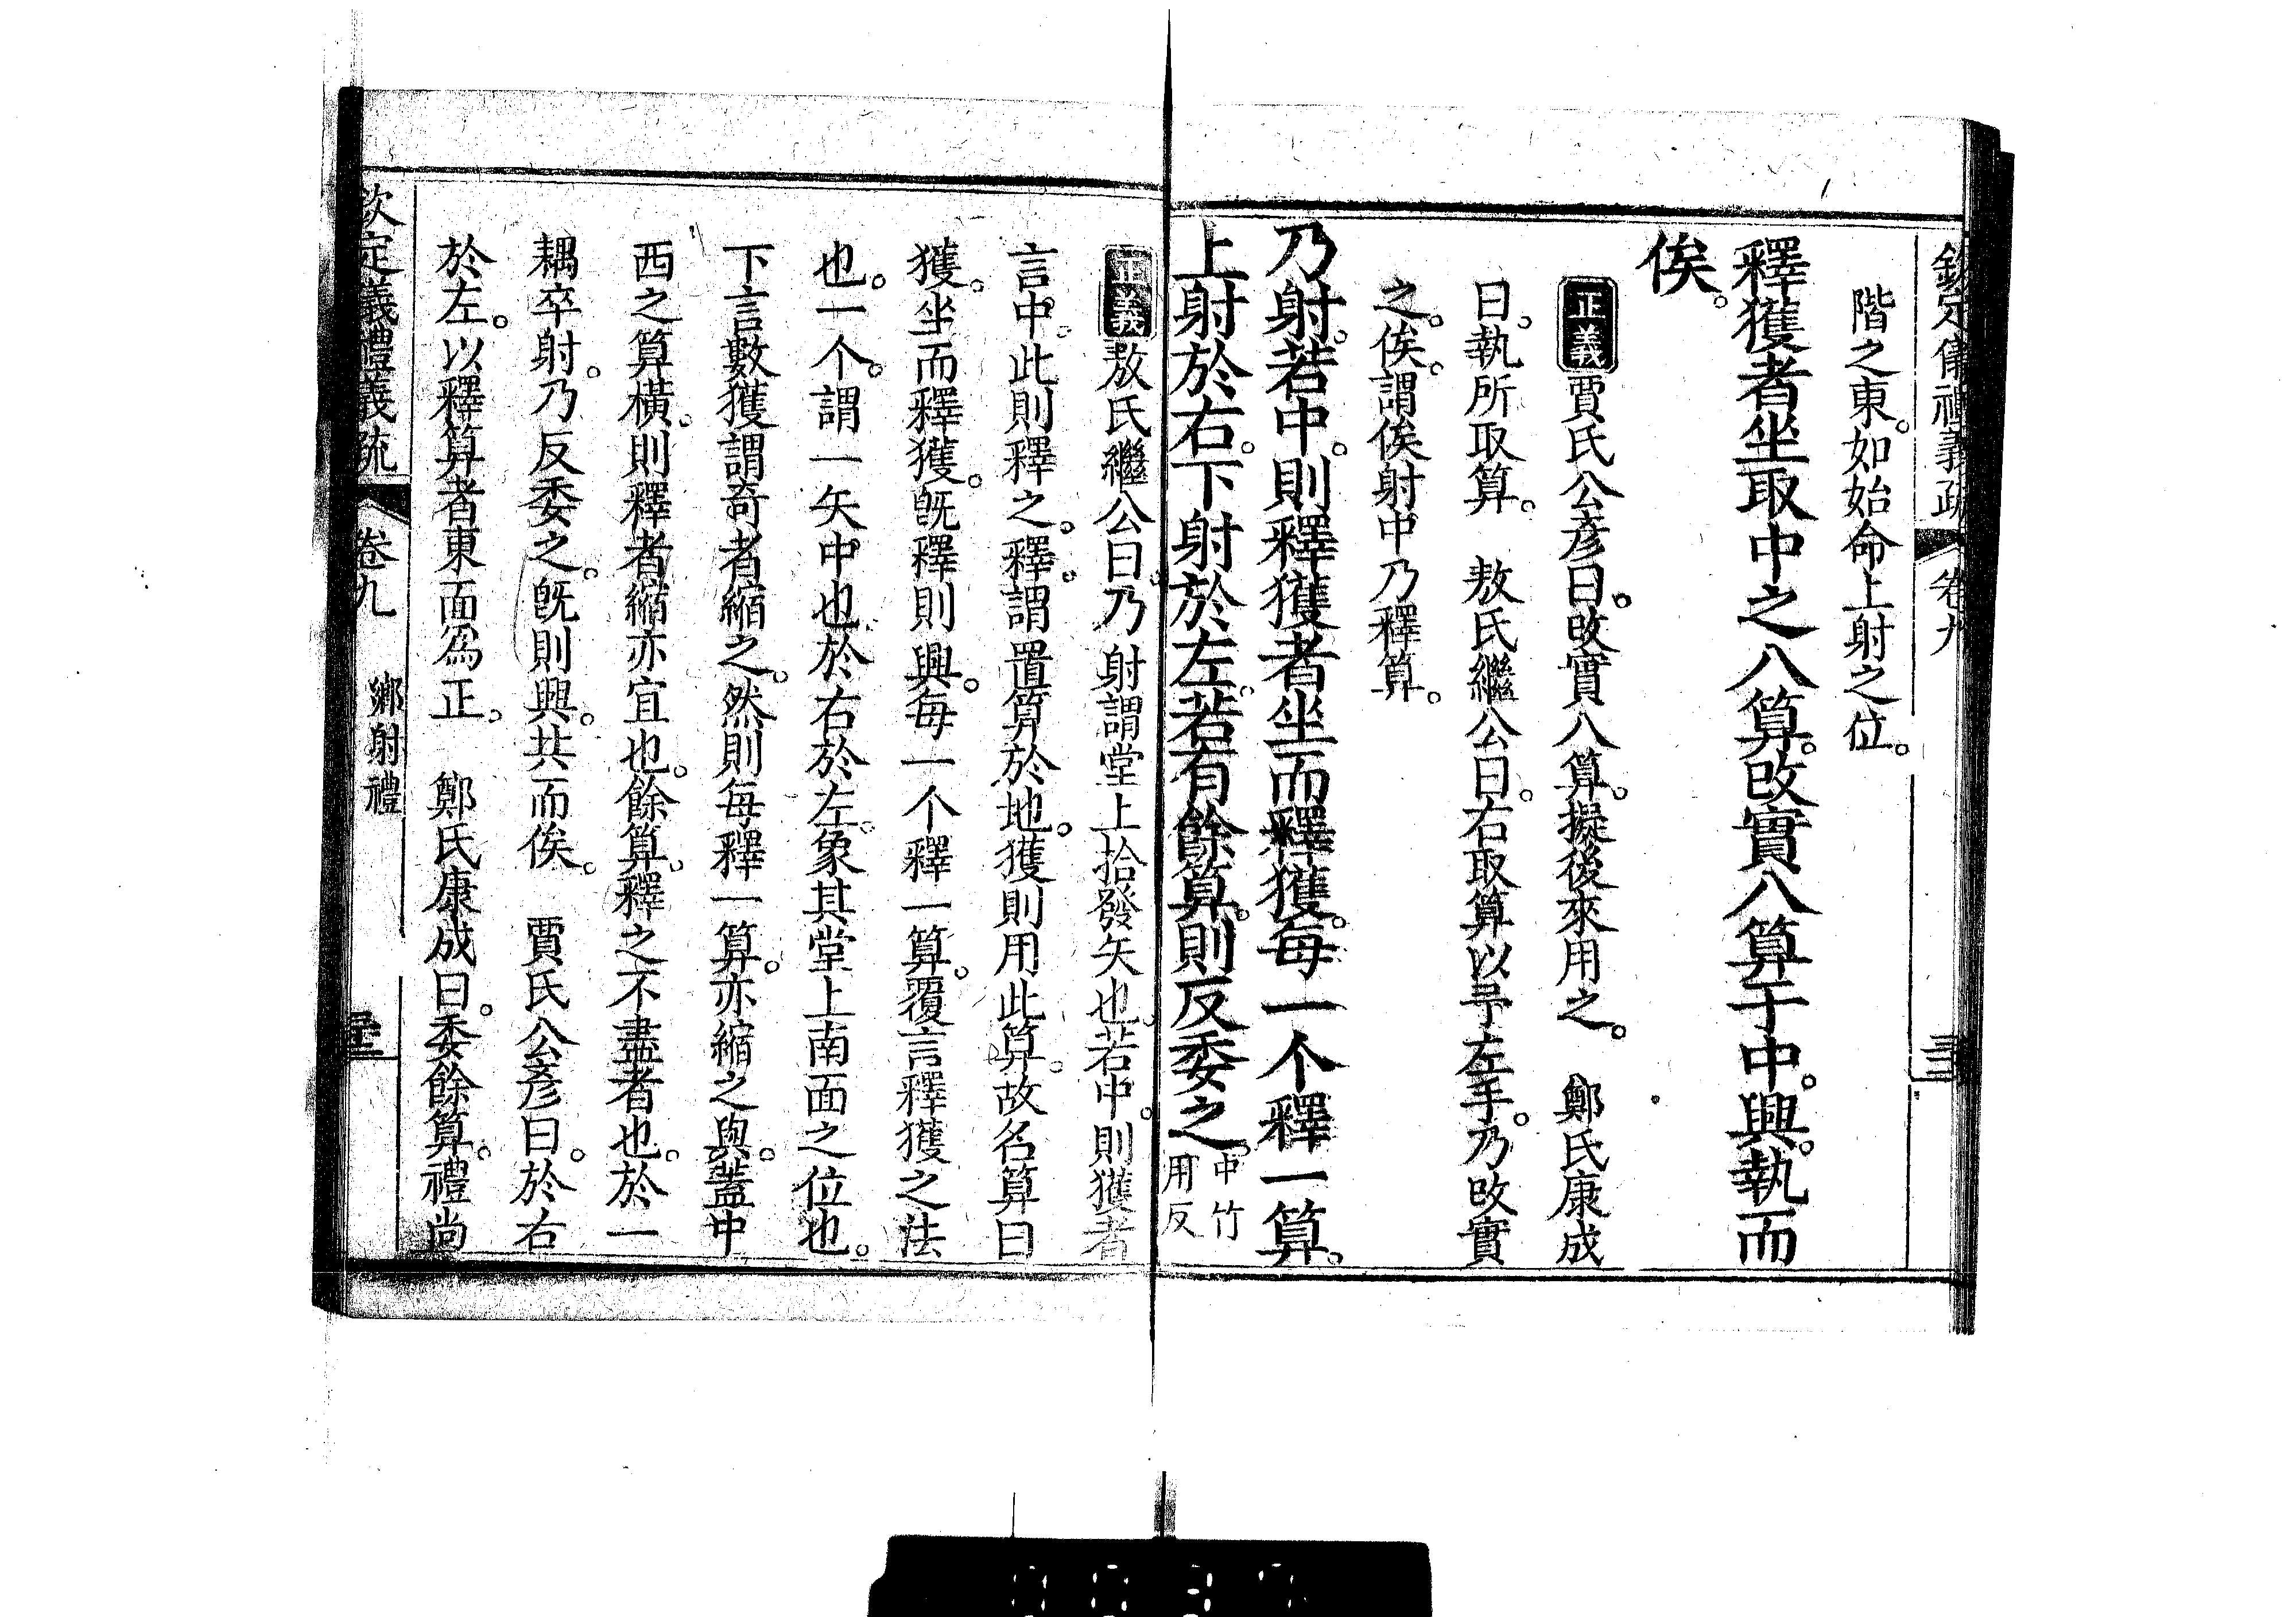 欽定儀禮義疏 卷九
階之東。如始命上射之位。
釋獲者坐取中之八算。改實八算于中。興。執而
俟。
正義賈氏公彥曰。改實八算。擬後來用之。 鄭氏康成
曰。執所取算。 敖氏繼公曰。右取算以予左手。乃改實
之。俟。謂俟射中乃釋算。
乃射。若中。則釋獲者坐而釋獲。每一个釋一算。
上射於右。下射於左。若有餘算。則反委之。中竹
用反
正義敖氏繼公曰。乃射謂堂上拾發矢也。若中。則獲者
言中。此則釋之。釋。謂置算於地。獲則用此算。故名算曰
獲。坐而釋獲。旣釋則興。每一个釋一算。覆言釋獲之法
也。一个。謂一矢中也。於右於左。象其堂上南面之位也。
下言數獲謂奇者縮之。然則每釋一算。亦縮之與。蓋中
西之算橫。則釋者縮亦宜也。餘算。釋之不盡者也。於一
耦卒射。乃反委之。旣則興。共而俟。 賈氏公彥曰。於右
於左。以釋算者東面爲正。 鄭氏康成曰。委餘算。禮尚
欽定義禮義疏 卷九 鄉射禮